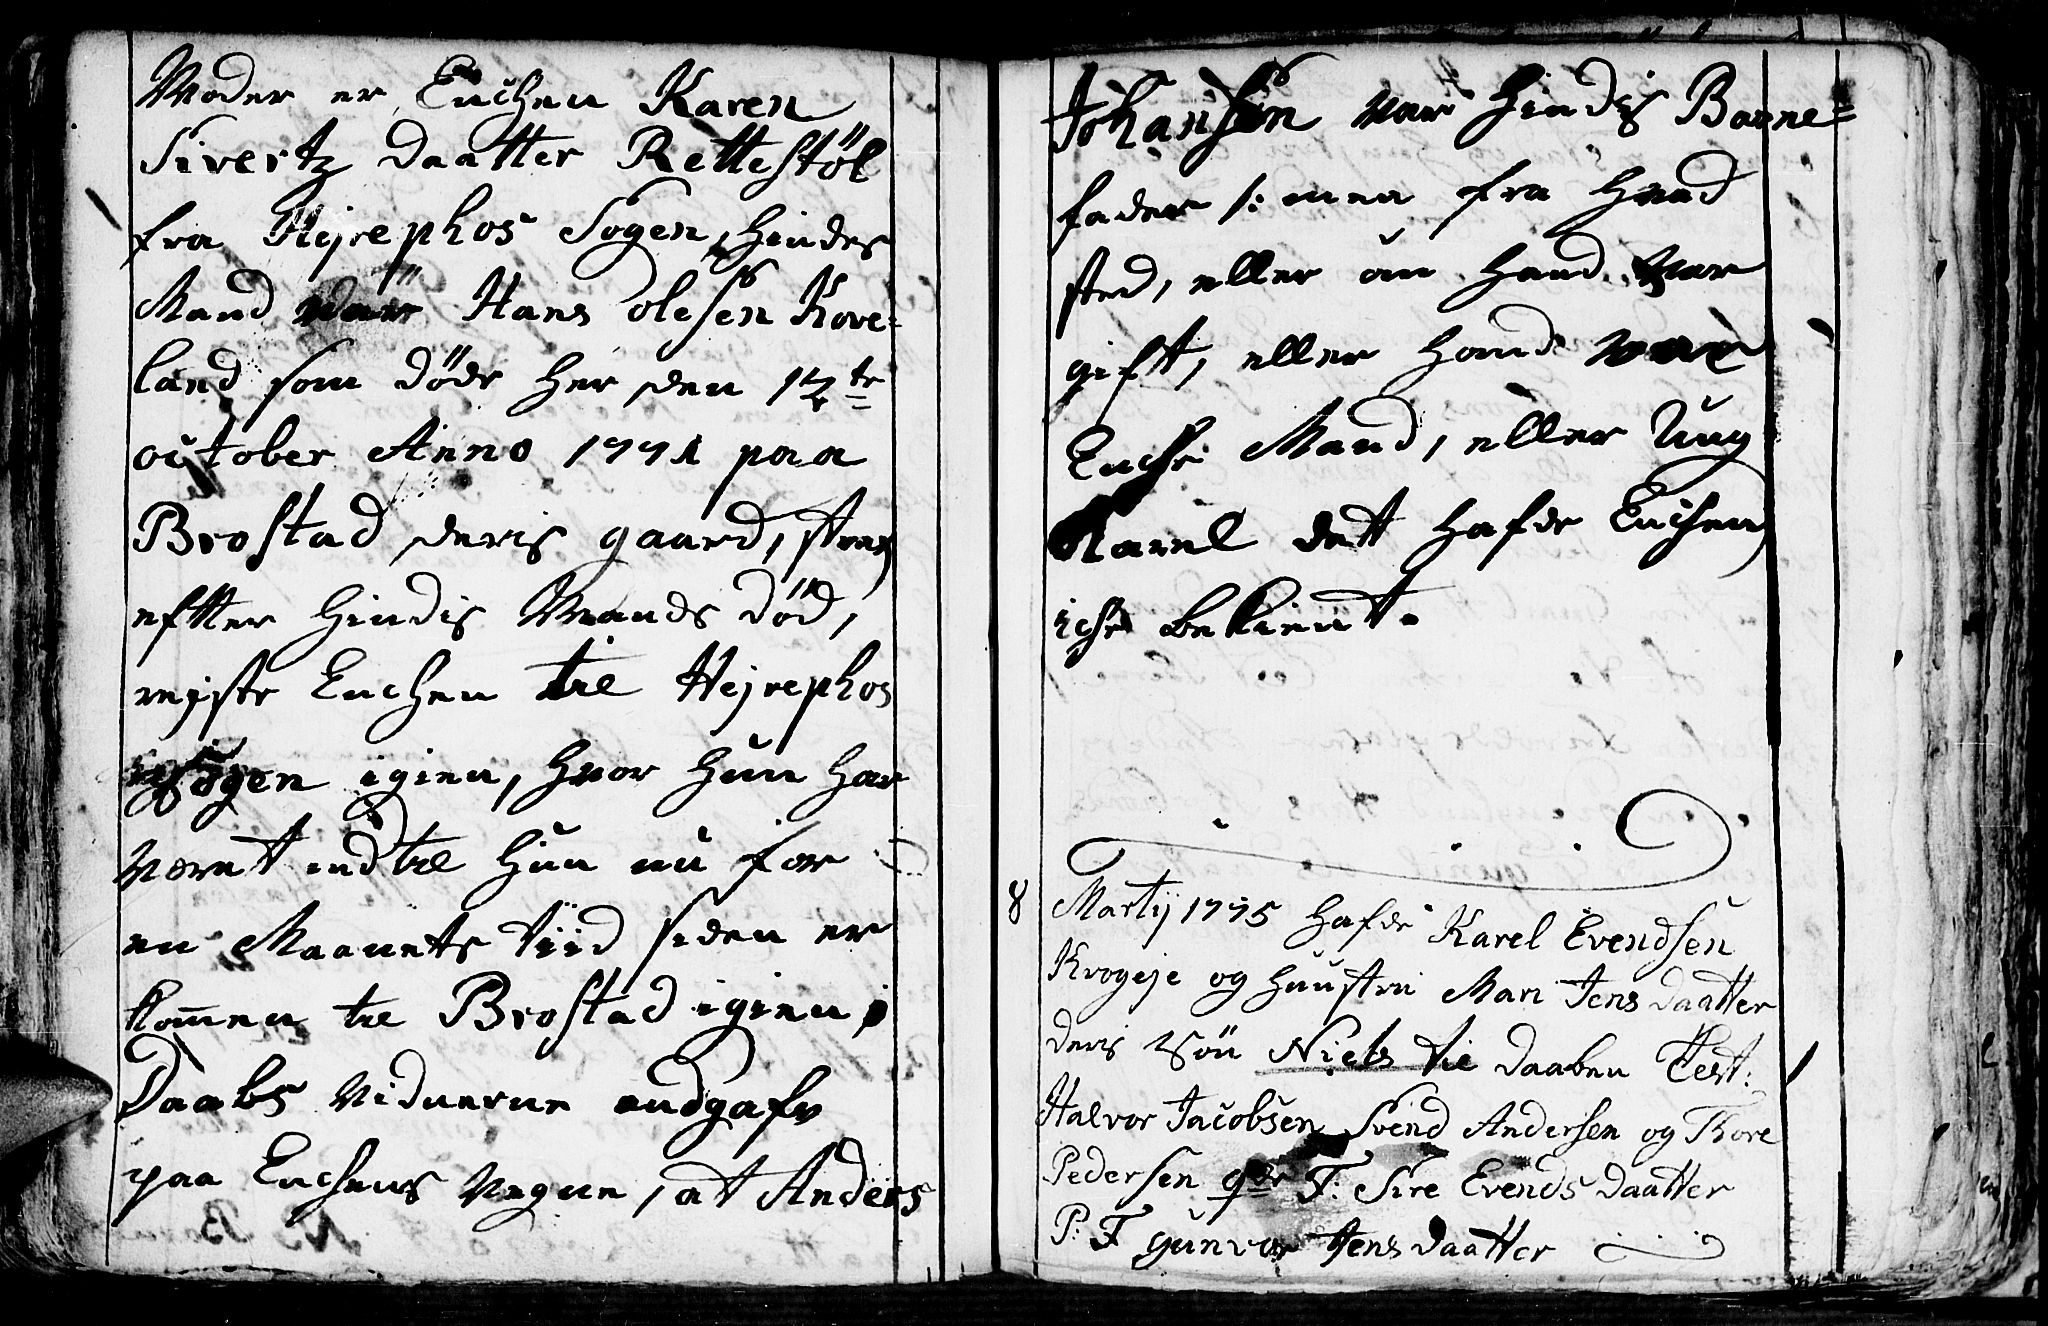 Moder er Enchen Karen
Sivertz daatter Rettestöl
fra Hejrephos Sogen, hindes
Mand var Hans olesen Kove=
land som döde her den 12te
october Anno 1771 paa
Brostad deris gaard, strax
eftter hindis Mands död,
rejste Enchen til Hejrephos
Sogen igien, hvor hun har
veret indtil hun nu for
en Maanets tiid siden er
kommen til Brostad igien
Daabs viduerne andgafv
paa Enchens vegne, at Anders
Johansen var hindis Barne=
fader /: men fra hvad
sted, eller om hand var
gift, eller hand var
Enche Mand, eller Ung
Karel dett hafde Enchen
iche bekiendt.
8 Martij 1775 hafde Karel Evendsen
Krogeje og huustru Mari Jens daatter
deris Sön Niels til daaben Test:
Halvor Jacobsen Svend Andersen og Thore
Pedersen gdr F: Sire Evends daatter
P: F gunvor Jens daatter